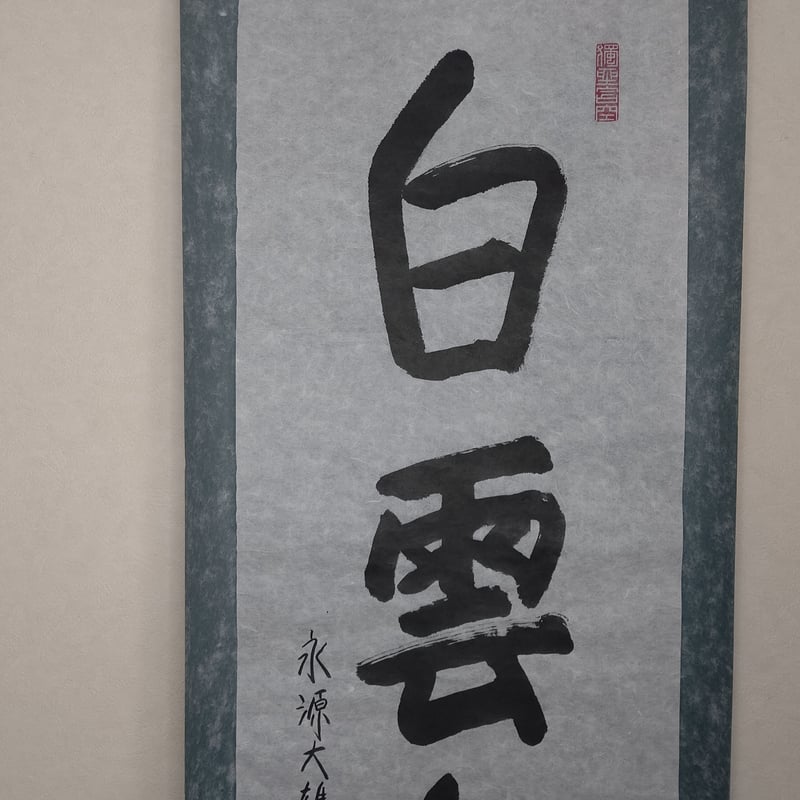 白雲
永源大雄